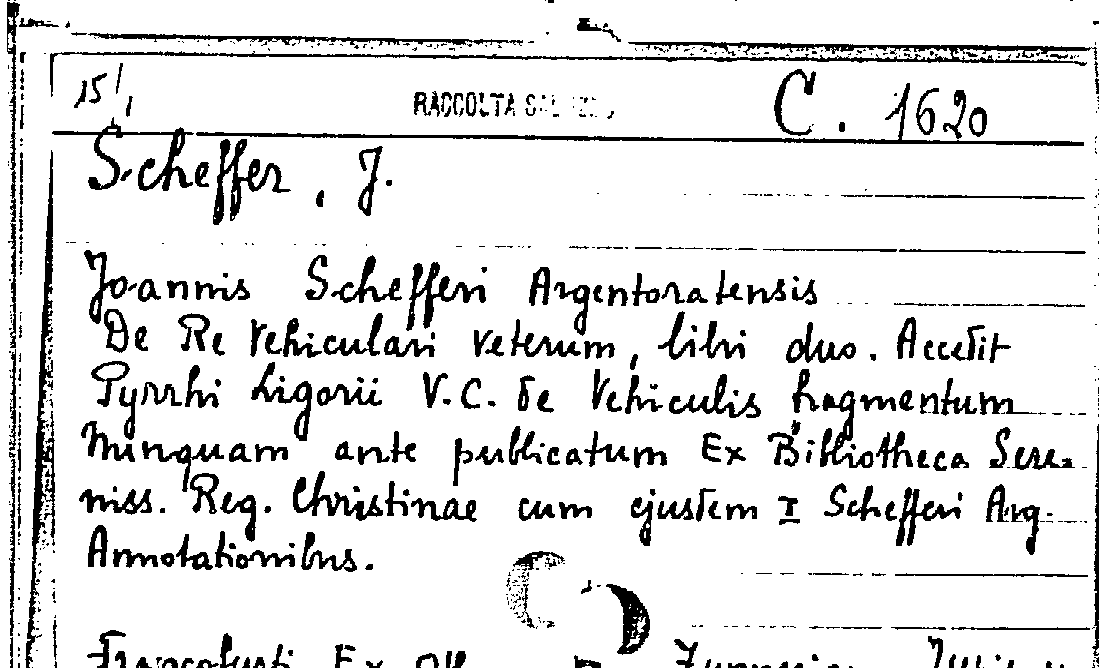 15/1 RACCOLTA C. 1620
Scheffer, J.
Joannis Schefferi Argentoratensis
De Re Vehiculari veterum, libri duo. Accedit
Pyrrhi Ligorii V.C. de Vehiculis fragmentum
nunquam ante publicatum Ex Bibliotheca Sere-
niss. Reg. Christinae cum ejusdem I Schefferi Arg.
Annotationibus.
Ex